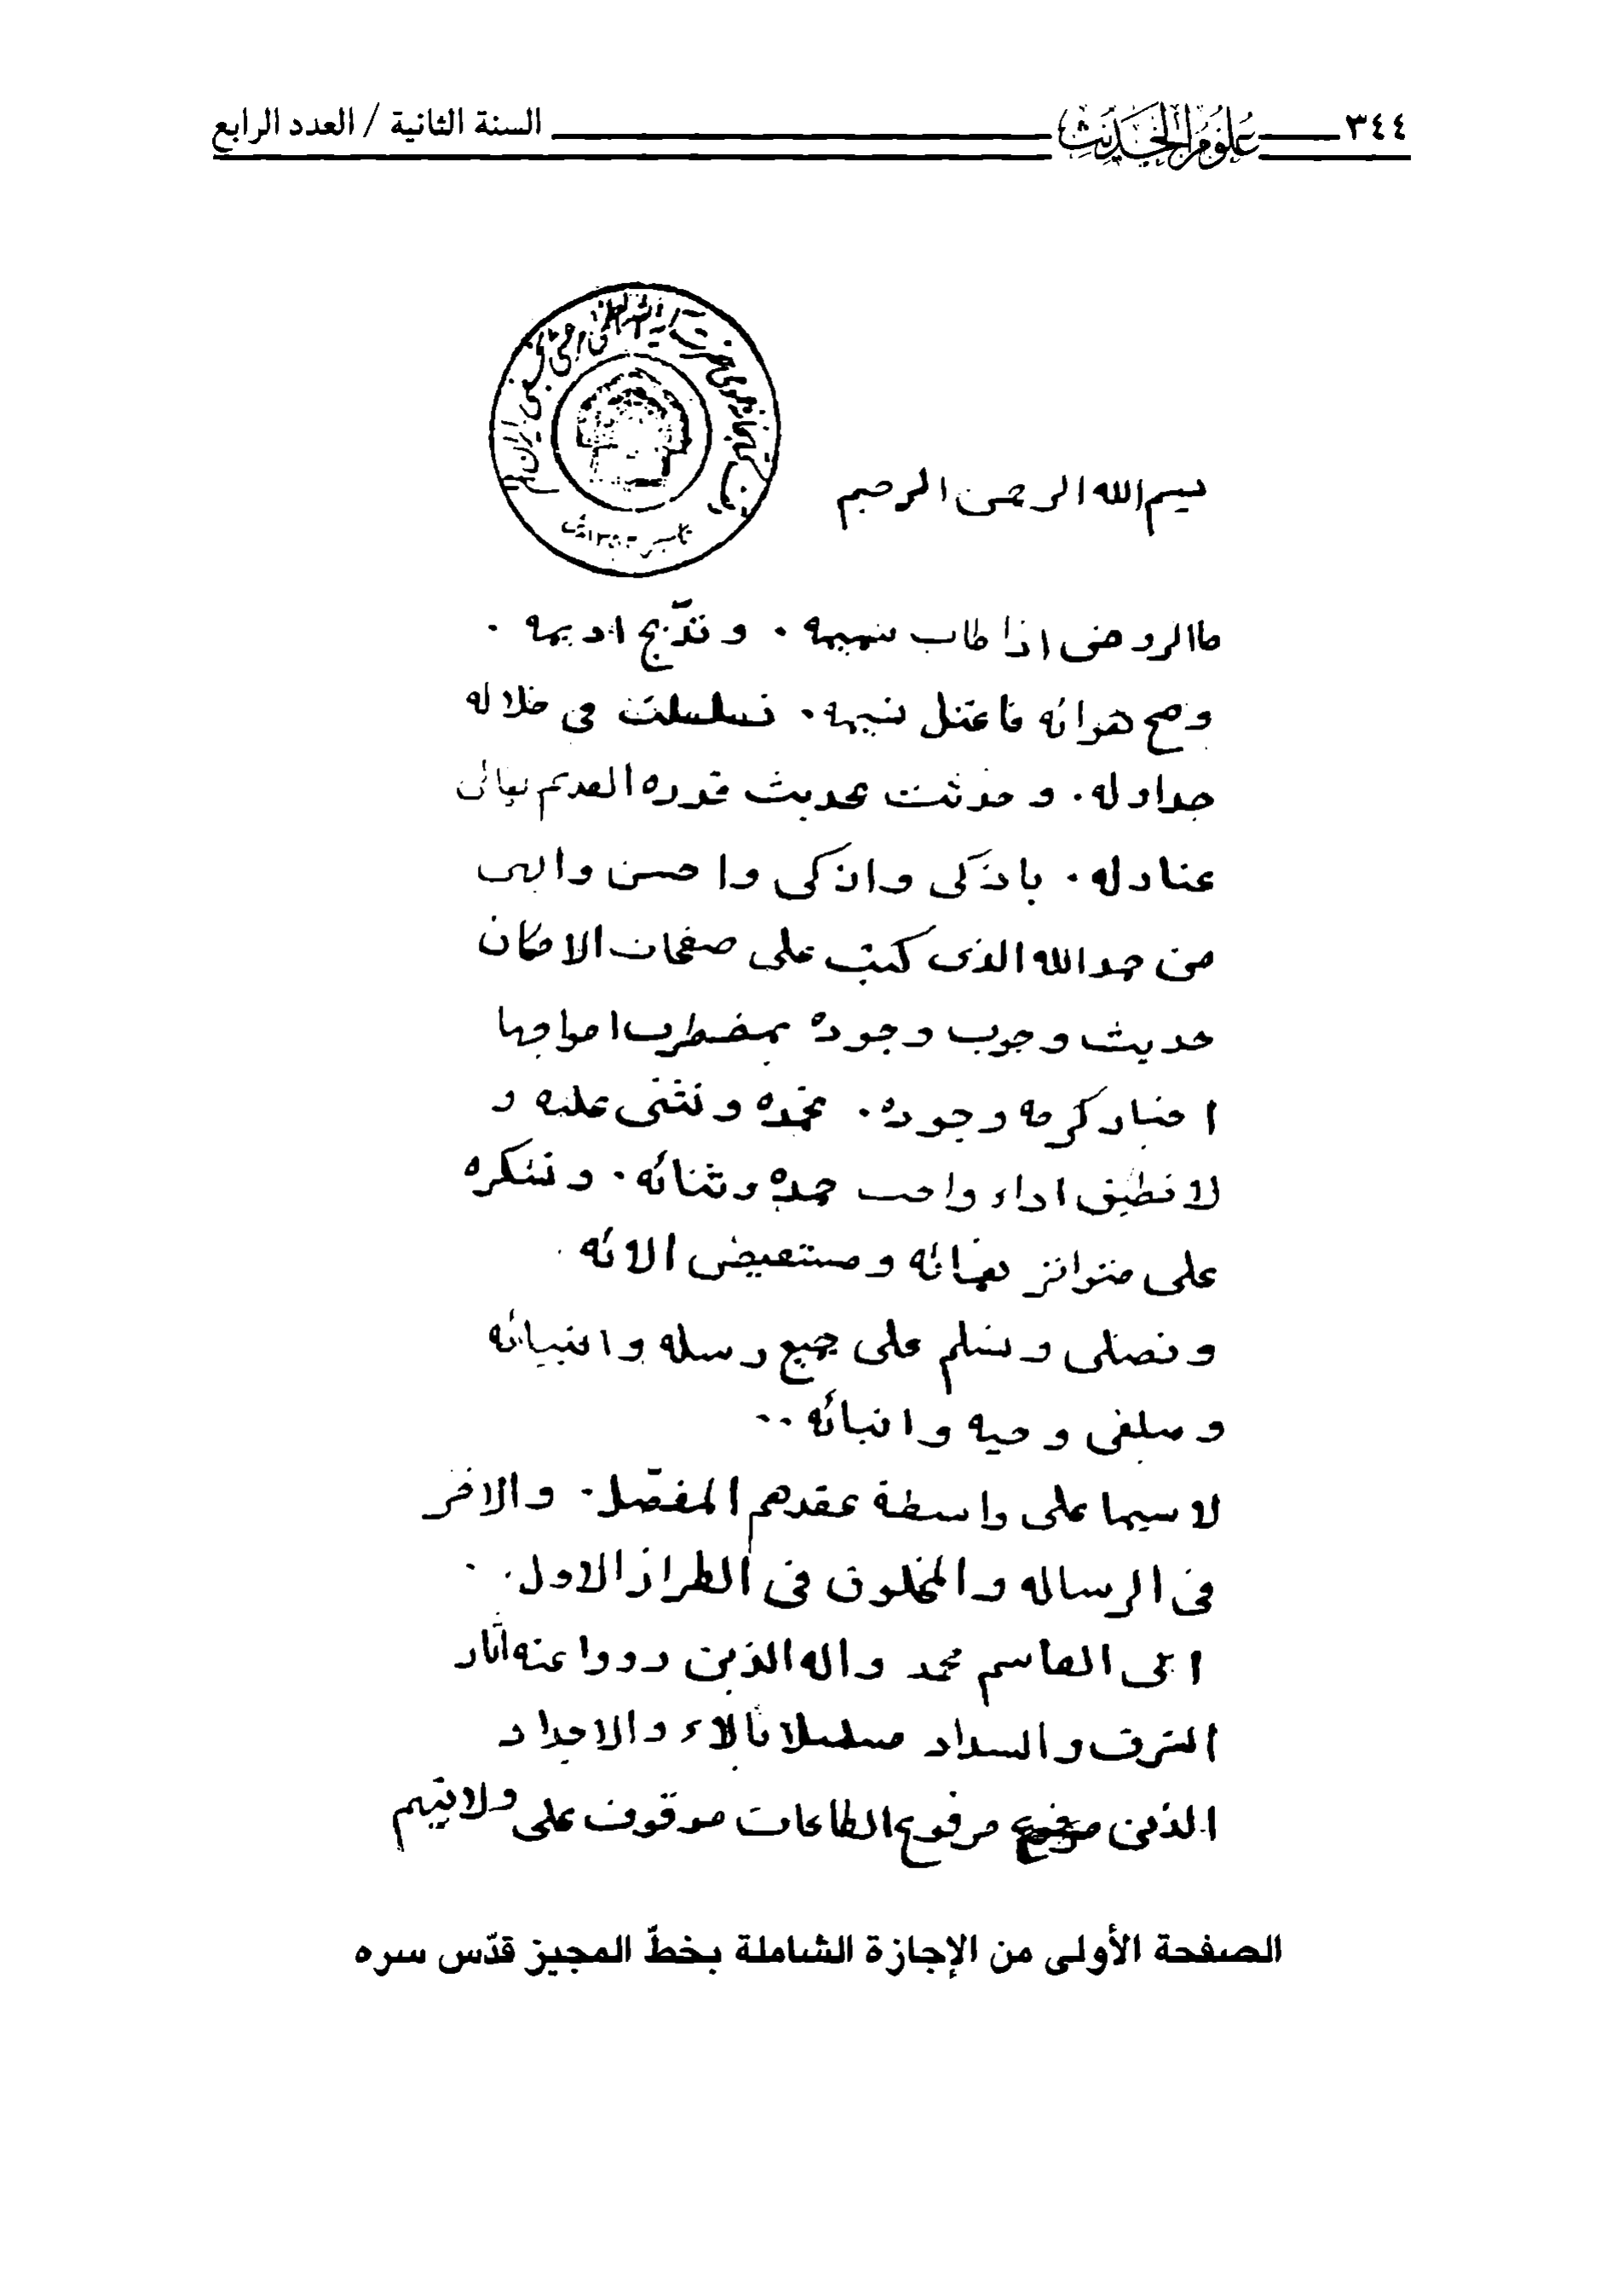 ٣٤٤ علوم الحديث السنة الثانية / العدد الرابع
بسم الله الرحمن الرحيم
ما الروض اذا طاب نميمه . و تدّبج اديمه .
وصح هوائه فاعتل نسيمه . تسلسلت فى خلاله
جداوله . و حدثت بحديث قدرة القديم تعالى
عنادله . باذكى وازكى واحسن وابهى
من حمد الله الذى كتب على صفحات الامكان
حديث وجوب وجوده بمضطرب امواجها
اخبار كرمه وجوده . نحمده و نثنى عليه و
لا نطيق اداء واجب حمده وثنائه . و نشكره
على متواتر نعمائه و مستفيض الائه .
و نصلى و نسلم على جميع رسله و انبيائه
و مبلغى وحيه وانبائه ..
لا سيما على واسطة عقدهم المفصّل . والاخر
فى الرسالة والمخلوق فى الطراز الاول .
ابى القاسم محمد واله الذين رووا عنه اثار
الشرف والسداد مسلسلا بالاباء والاجداد
الذين مرفوع الطاعات موقوف على ولايتهم
الصفحة الأولى من الإجازة الشاملة بخطّ المجيز قدّس سره